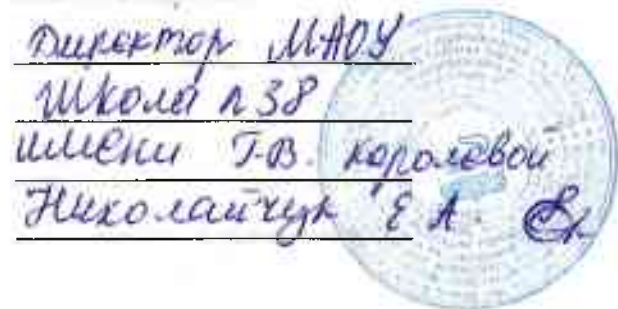 Директор МАОУ
Школа n 38
имени Г.В. королевой
Николайчук Е А.